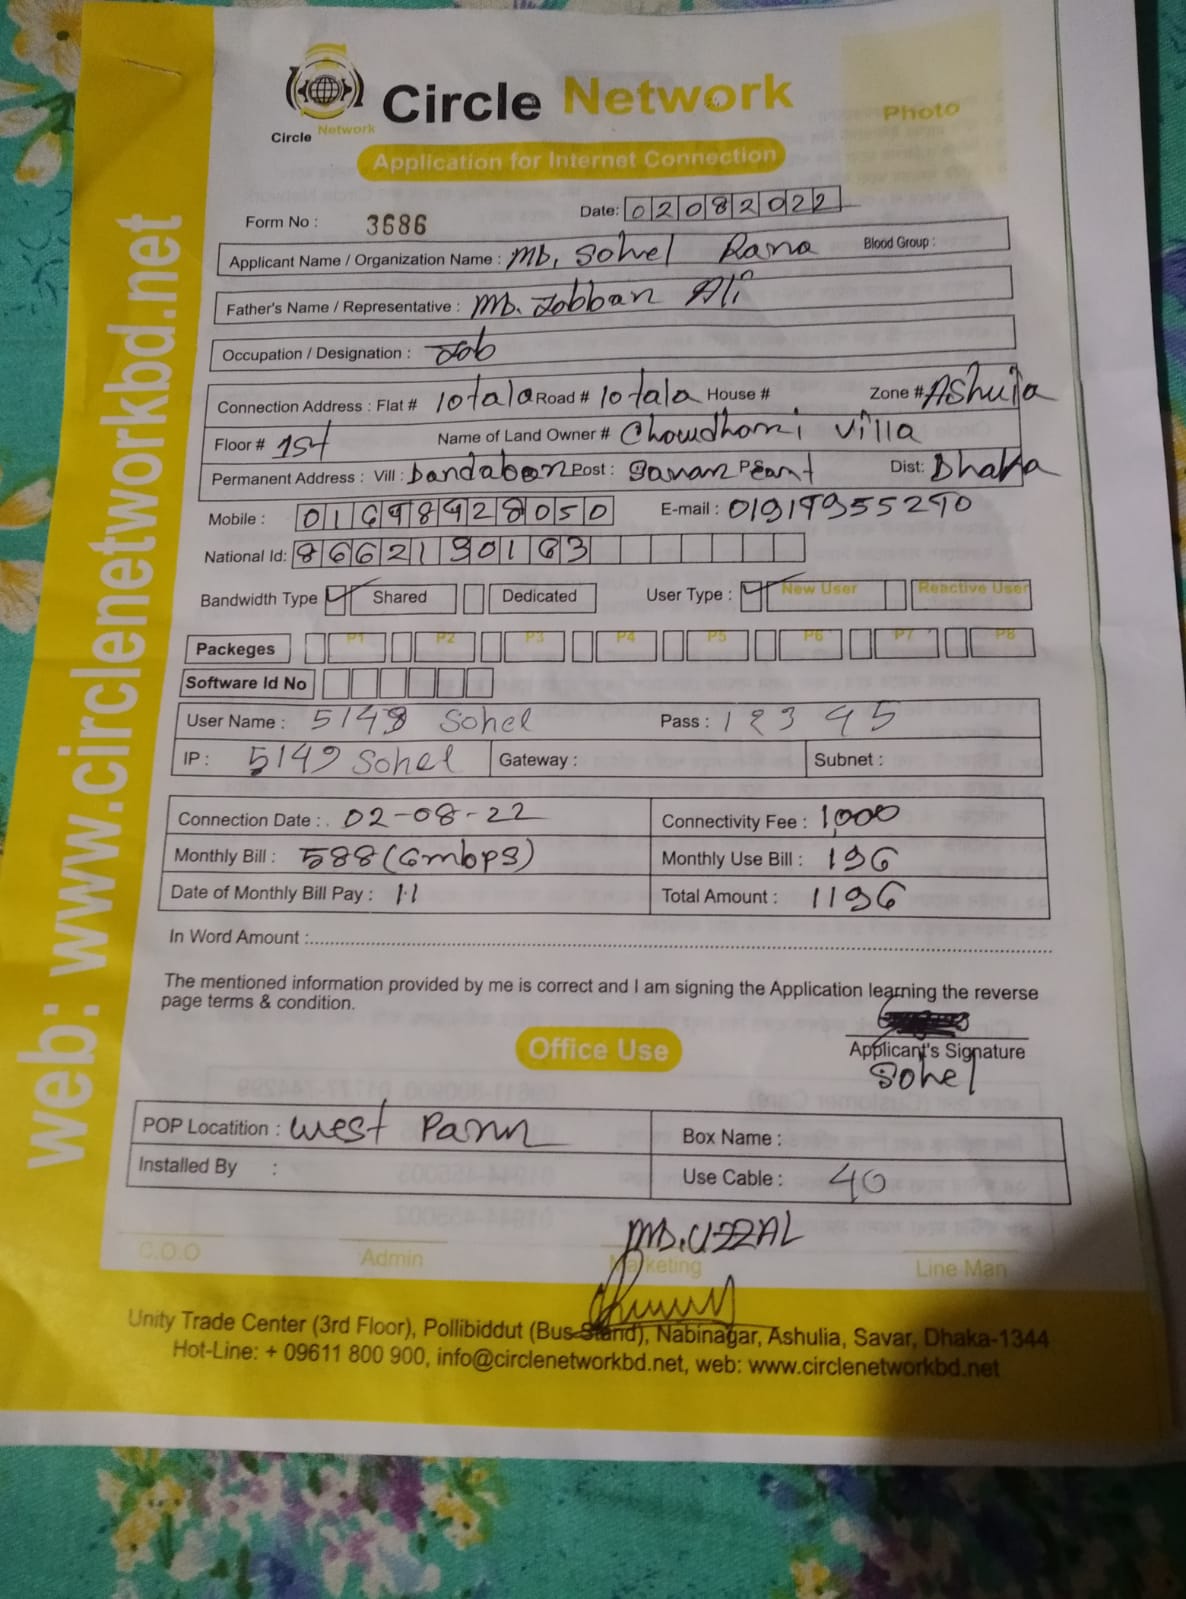 Circle Network
Circle Network
Photo
Application for Internet Connection
Form No : 3686
Date: 02082022
Applicant Name / Organization Name : Md, Sohel Rana Blood Group :
Father's Name / Representative : Md. Jobban Ali
Occupation / Designation : Job
Connection Address : Flat # 10 tala Road # 10 tala House # Zone #
Floor # 1st Name of Land Owner # Villa
Permanent Address : Vill : Post : Dist: Dhaka
Mobile :
E-mail :
National Id:
Bandwidth Type Shared Dedicated User Type : New User Reactive User
Packeges P1 P2 P3 P4 P5 P6 P7 P8
Software Id No
User Name : Sohel Pass :
IP : 5149 Sohel Gateway : Subnet :
Connection Date : 02-08-22 Connectivity Fee : 1,000
Monthly Bill : 588 (6mbps) Monthly Use Bill : 196
Date of Monthly Bill Pay : Total Amount : 1196
In Word Amount :
The mentioned information provided by me is correct and I am signing the Application learning the reverse
page terms & condition.
Office Use
Applicant's Signature
Sohel
POP Locatition : West Box Name :
Installed By : Use Cable : 40
Md. UZZAL
C.O.O Admin Marketing Line Man
Unity Trade Center (3rd Floor), Pollibiddut (Bus Stand), Nabinagar, Ashulia, Savar, Dhaka-1344
Hot-Line: + 09611 800 900, info@circlenetworkbd.net, web: www.circlenetworkbd.net
web: www.circlenetworkbd.net